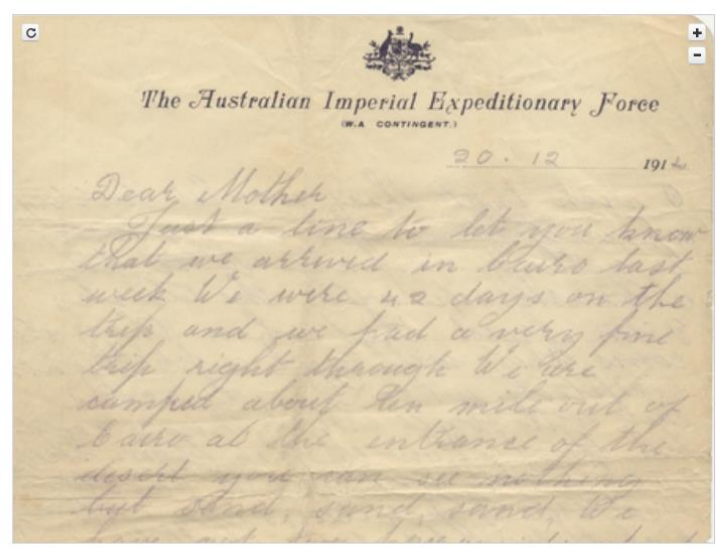 The Australian Imperial Expeditionary Force
(W.A CONTINGENT.)
20 . 12 1914
Dear Mother
Just a line to let you know
that we arrived in Cairo last
week We were 42 days on the
trip and we had a very fine
trip right through We are
camped about ten mile out of
Cairo at the entrance of the
desert you can see nothing
but sand, sand, sand, We
have